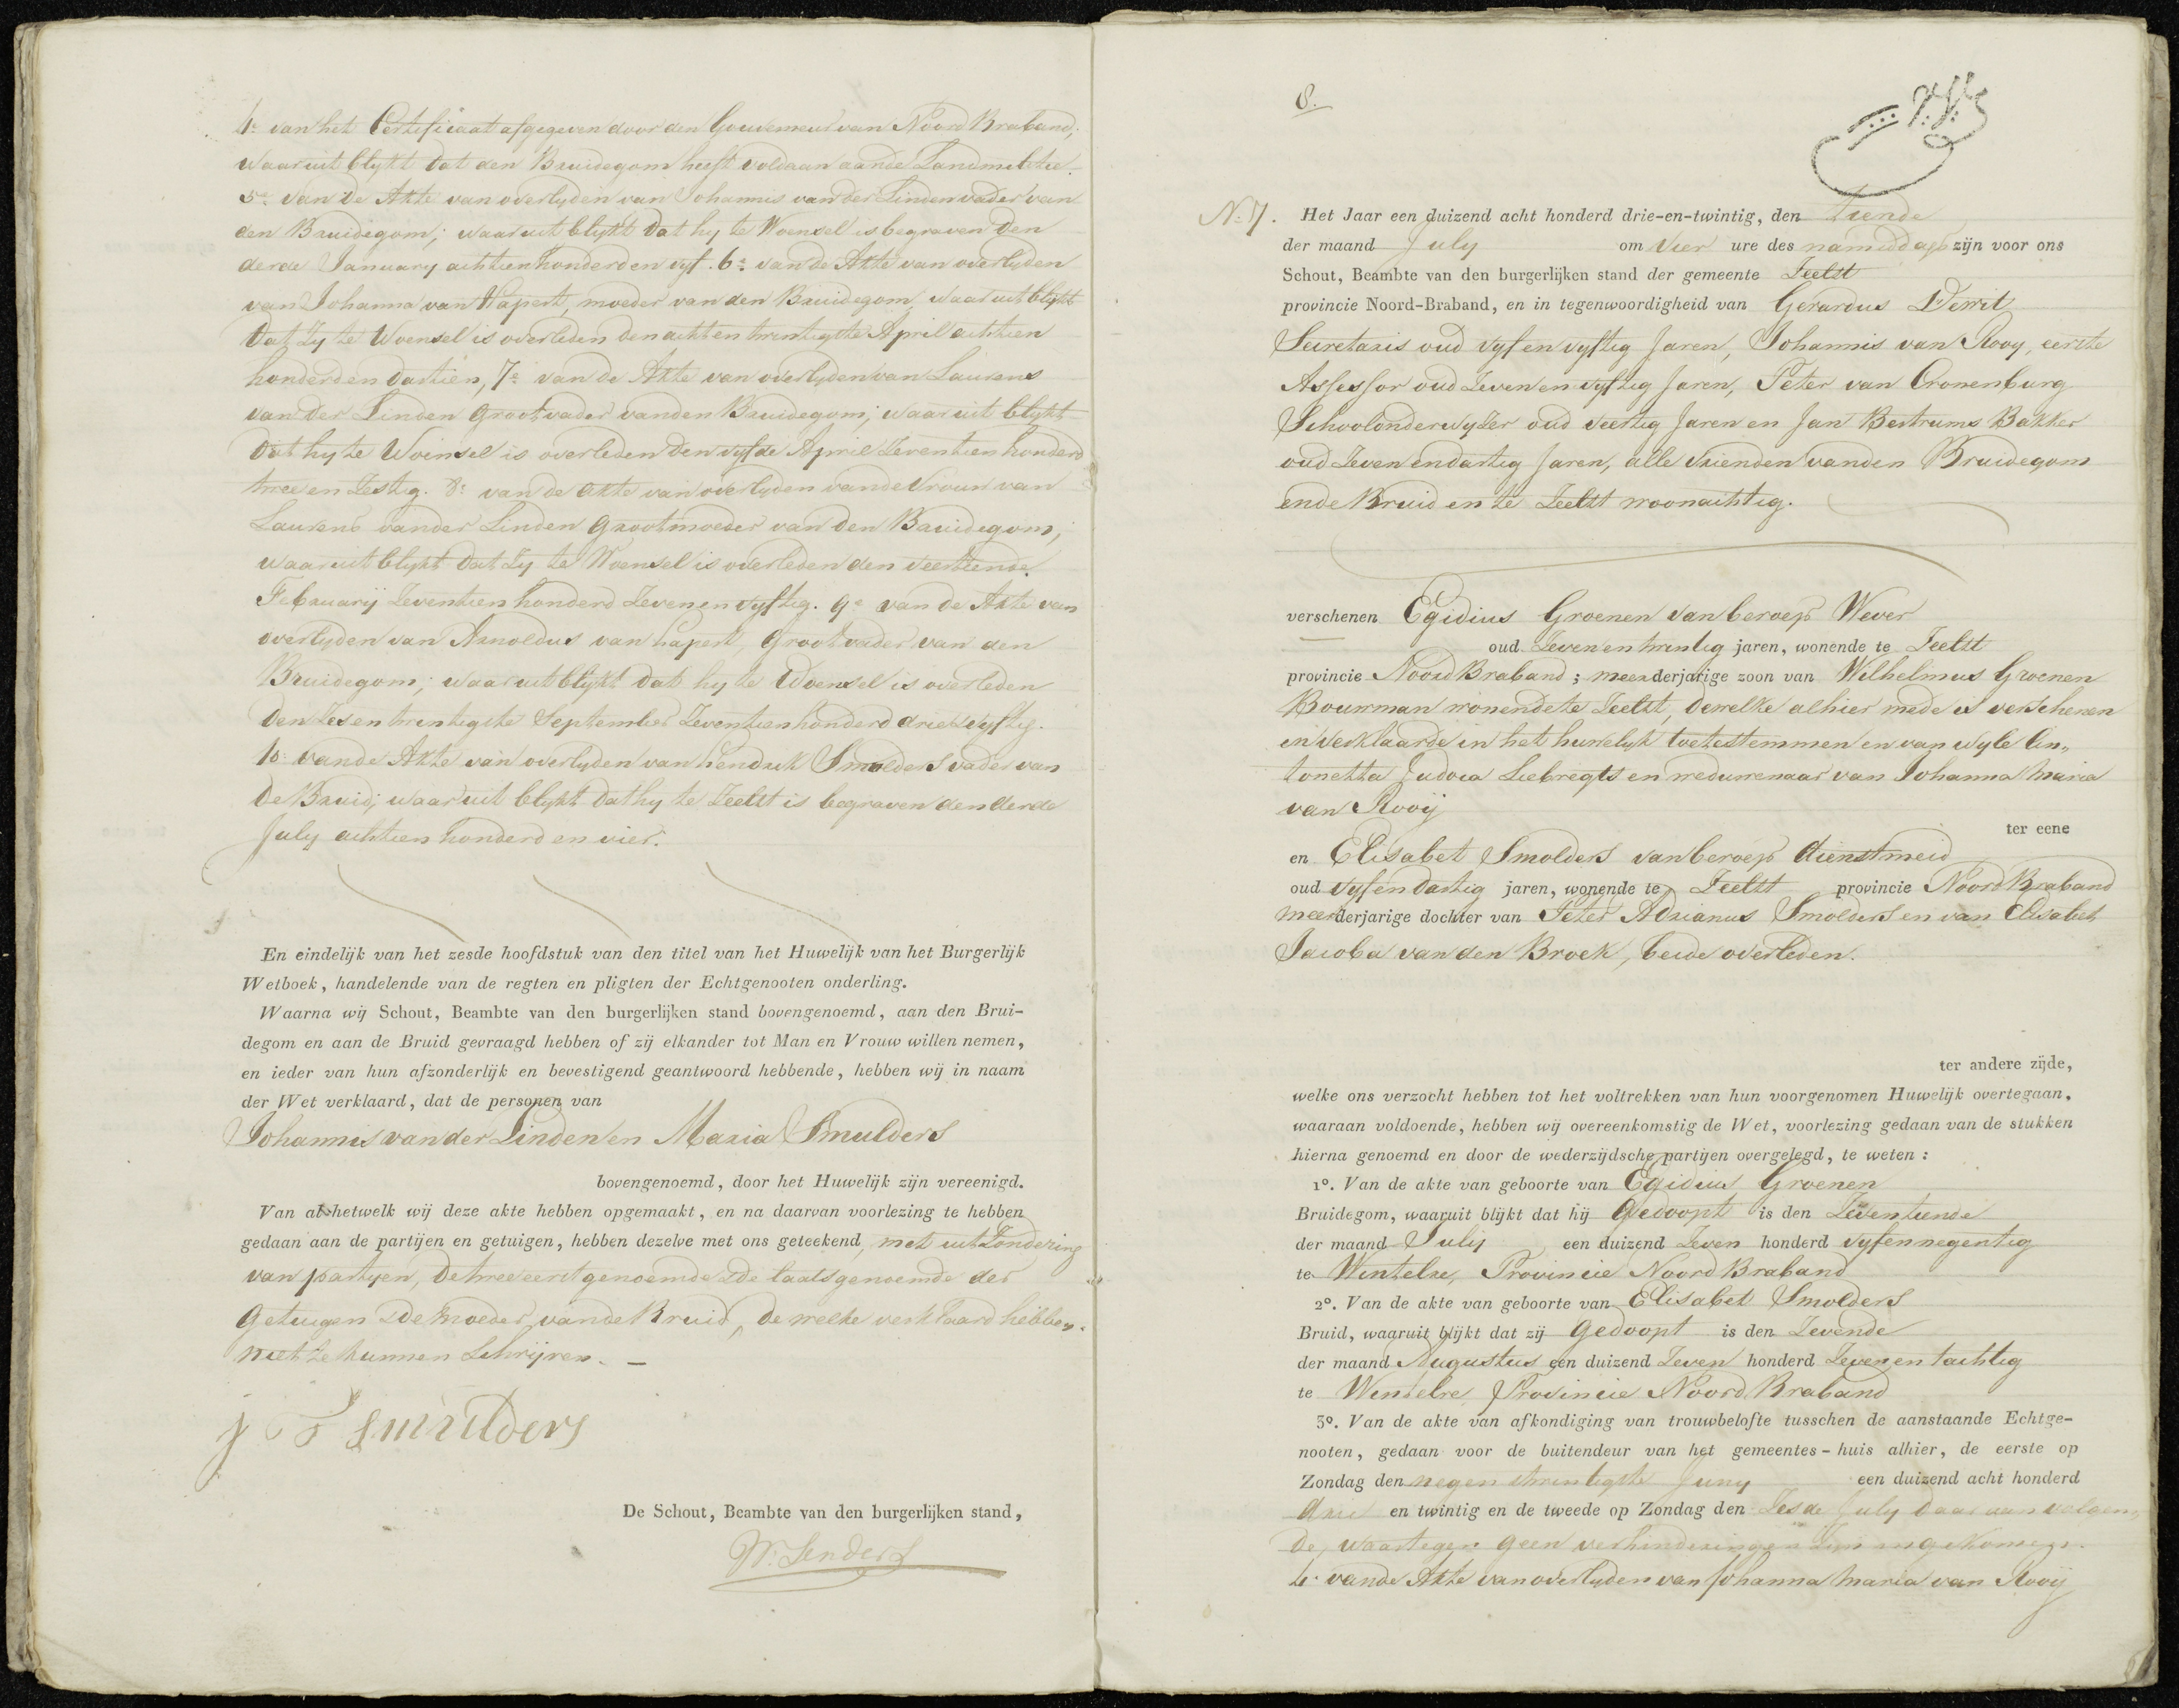 4e van het Certificaat afgegeven door den Gouverneur van Noord Braband,
waaruit blykt dat den Bruidegom heeft voldaan aande Landmilitie.
5e van de Akte van overlyden van Johannis van der Linden vader van
den Bruidegom; waaruit blykt dat hy te Woensel is begraven den
derde January achtien honderd en vyf. 6e van de Akte van overlyden
van Johanna van Hapert, moeder van den Bruidegom, waaruit blykt
dat Zy te Woensel is overleden den acht en twintigste April achtien
honderd en dartien, 7e van de Akte van overlyden van Laurens
van der Linden Grootvader vanden Bruidegom; waaruit blykt
dat hy te Woensel is overleden den vyfde April Zeventien honderd
twee en Zestig. 8e van de Akte van overlyden vande Vrouw van
Laurens vander Linden Grootmoeder van den Bruidegom;
waaruit blykt dat Zy te Woensel is overleden den veertiende
February Zeventien honderd Zeven en vyftig. 9e van de Akte van
overlyden van Arnoldus van hapert, Grootvader van den
Bruidegom; waaruit blykt dat hy te Woensel is overleden
den Zes en twintigste September Zeventien honderd drie en vyftig.
10e vande Akte van overlyden van hendrik Smolders vader van
de Bruid; waaruit blykt dat hy te Zeelst is begraven den derde
July achtien honderd en vier.
En eindelijk van het zesde hoofdstuk van den titel van het Huwelijk van het Burgerlijk
Wetboek, handelende van de regten en pligten der Echtgenooten onderling.
Waarna wij Schout, Beambte van den burgerlijken stand bovengenoemd, aan den Brui-
degom en aan de Bruid gevraagd hebben of zij elkander tot Man en Vrouw willen nemen,
en ieder van hun afzonderlijk en bevestigend geantwoord hebbende, hebben wij in naam
der Wet verklaard, dat de personen van
Johannis van der Linden en Maria Smulders
bovengenoemd, door het Huwelijk zijn vereenigd.
Van al hetwelk wij deze akte hebben opgemaakt, en na daarvan voorlezing te hebben
gedaan aan de partijen en getuigen, hebben dezelve met ons geteekend, met uitZondering
van partyen, de twee eerstgenoemde & de laatsgenoemde der
Getuigen & de moeder vande Bruid, de welke verklaard hebben
niet te kunnen Schrijven. —
Smulders
De Schout, Beambte van den burgerlijken stand,
W. Senders
8.
No 7. Het Jaar een duizend acht honderd drie-en-twintig, den tiende
der maand July om vier ure des namiddags zijn voor ons
Schout, Beambte van den burgerlijken stand der gemeente Zeelst
provincie Noord-Braband, en in tegenwoordigheid van Gerardus Derrit
Secretaris oud vyf en vyftig Jaren, Johannis van Rooy, eerste
Assessor oud Zeven en vyftig Jaren, Peter van Cronenburg
Schoolonderwyzer oud veertig Jaren en Jan Bertrums Bakker
oud Zeven en dartig Jaren, alle Vrienden vanden Bruidegom
en de Bruid en te Zeelst woonachtig.
verschenen Egidius Groenen van beroep Wever
oud Zeven en twintig jaren, wonende te Zeelst
provincie Noord Braband; meerderjarige zoon van Wilhelmus Groenen
Bouwman wonende te Zeelst, dewelke alhier mede is verschenen
en verklaarde in het huwelyk toetestemmen en van wyle An„
tonetta Judoca Liebregts en weduwenaar van Johanna Maria
van Rooij
ter eene
en Elisabet Smolders van beroep dienstmeid
oud vyf en dartig jaren, wonende te Zeelst provincie Noord Braband
meerderjarige dochter van Peter Adrianus Smolders en van Elisabet
Jacoba van den Broek, beide overleden.
ter andere zijde,
welke ons verzocht hebben tot het voltrekken van hun voorgenomen Huwelijk overtegaan,
waaraan voldoende, hebben wij overeenkomstig de Wet, voorlezing gedaan van de stukken
hierna genoemd en door de wederzijdsche partijen overgelegd, te weten:
1o. Van de akte van geboorte van Egidius Groenen
Bruidegom, waaruit blijkt dat hij Gedoopt is den Zeventiende
der maand July een duizend Zeven honderd vyf en negentig
te Wintelre, Provincie Noord Braband
2o. Van de akte van geboorte van Elisabet Smolders
Bruid, waaruit blijkt dat zij Gedoopt is den Zevende
der maand Augustus een duizend Zeven honderd Zeven en tachtig
te Wintelre, Provincie Noord Braband
3o. Van de akte van afkondiging van trouwbelofte tusschen de aanstaande Echtge-
nooten, gedaan voor de buitendeur van het gemeentes-huis alhier, de eerste op
Zondag den negen & twintigste Juny een duizend acht honderd
drie en twintig en de tweede op Zondag den Zesde July daar aan volgen„
de, waartegen geen verhinderingen Zyn ingekomen.
4e vande Akte van overlyden van Johanna Maria van Rooij